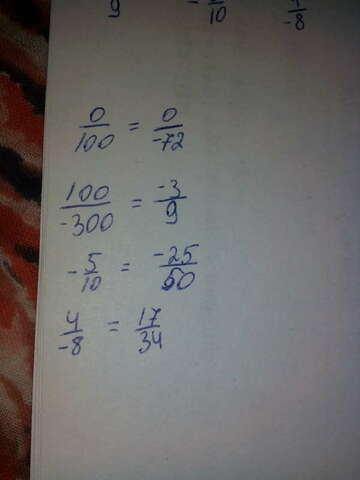 9 10 -8
0/100 = 0/-72
100/-300 = -3/9
-5/10 = -25/50
4/-8 = 17/34